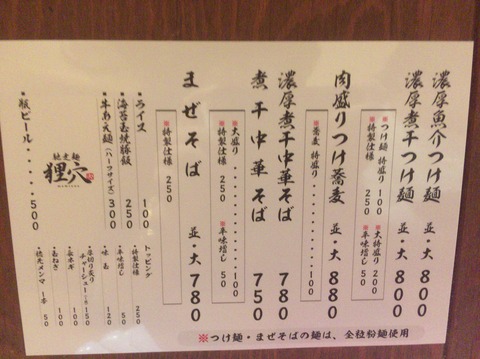 濃厚魚介つけ麺 並・大 800
濃厚煮干つけ麺 並・大 800
※つけ麺 特盛り 100 ※大特盛り 200
※特製仕様 250 ※辛味増し 50
肉盛りつけ蕎麦 並・大 880
※蕎麦 特盛り・・・・・・100
濃厚煮干中華そば 780
煮干中華そば 750
※大盛り・・・・・・100
※特製仕様 250 ※辛味増し 50
まぜそば 並・大 780
※特製仕様 250
・ライス 100
・海苔玉焼豚飯 250
・牛あえ麺(ハーフサイズ) 300
トッピング
・特製仕様 250
・辛味増し 50
・味玉 120
・厚切り炙り
チャーシュー 150
・長ネギ 100
・玉ねぎ 100
・穂先メンマ一本 50
馳走麺
狸穴
MAMIANA
・瓶ビール・・・・・・500
※つけ麺・まぜそばの麺は、全粒粉麺使用